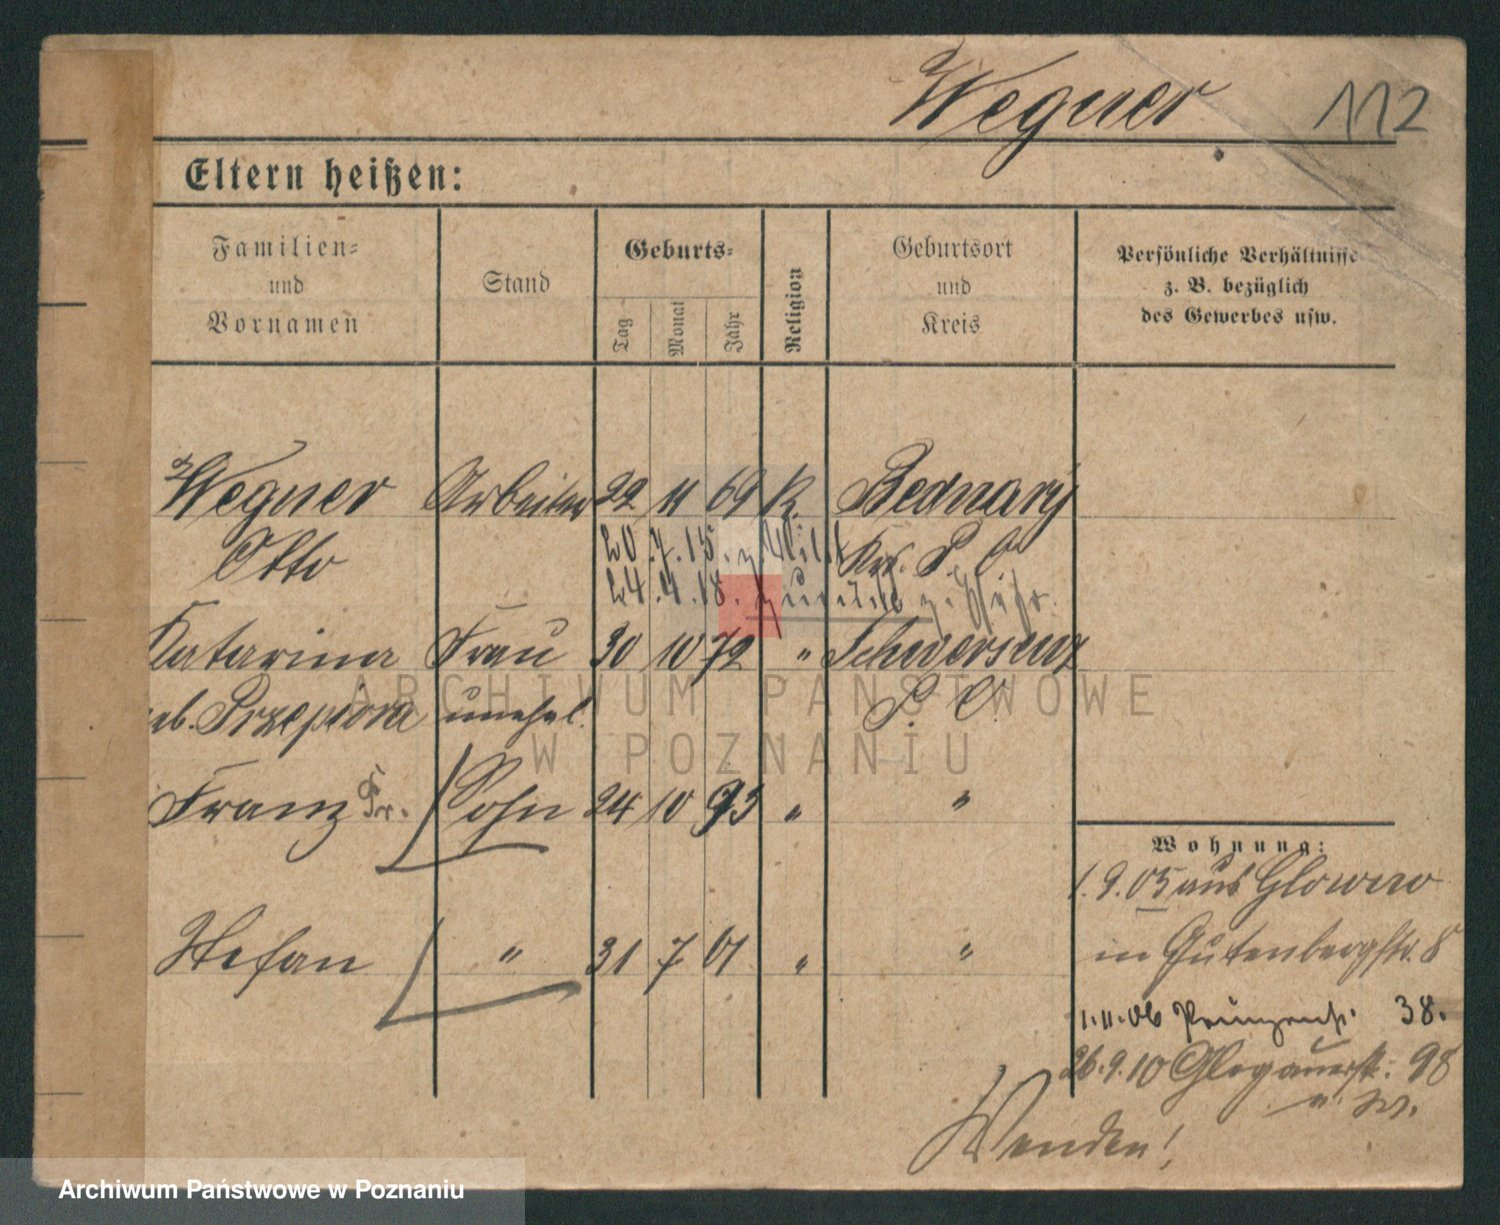 Wegner 112
Eltern heißen:
Familien- und Vornamen
Stand
Geburts-
Tag Monat Jahr
Religion
Geburtsort und Kreis
Persönliche Verhältnisse z. B. bezüglich des Gewerbes usw.
Wegner Arbeiter 22 11 69 K. Bednary
Otto Krs. P. O
20.7.15. z. Milit
24.4.18. zurück z.
Katarina Frau 30 10 72 " Schwersenz
geb. Przepiora unehel. P. O.
Franz Pr. Sohn 24 10 93 " "
Stefan " 31 7 01 " "
Wohnung:
1.9.05 aus Glowno
in Gutenbergstr. 8
1.11.06 Prinzenstr. 38.
26.9.10 Glogauerstr. 98
Wenden!
ARCHIWUM PAŃSTWOWE
W POZNANIU
Archiwum Państwowe w Poznaniu